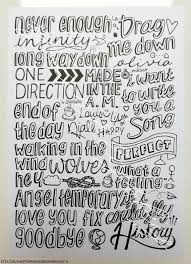 never enough Drag
infinity me down
long way down olivia
ONE MADE I want
DIRECTION IN THE to write
end of A.M. you a
the day Song
walking in the PERFECT
wind wolves what a
hey feeling
Angel temporary if I
love you fix could fly
goodbye History